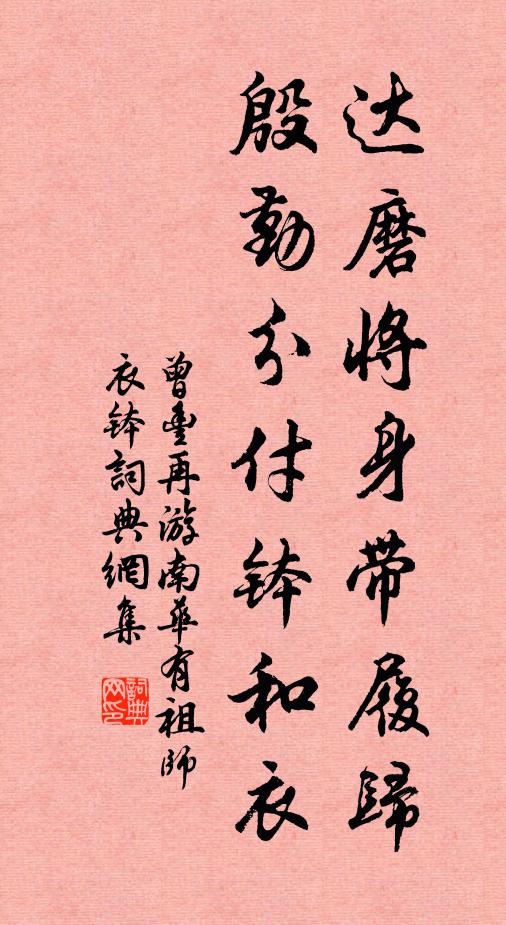 达磨将身带履歸
殷勤分付钵和衣
曾豊再游南華有祖師
衣钵詞典網集
詞典网印